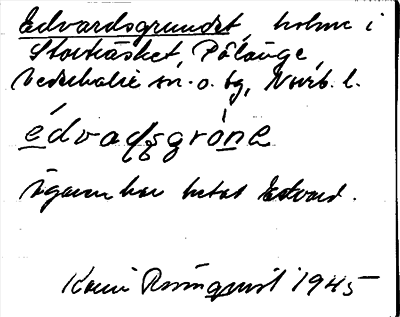 Edvardsgrundet, holme i
Storträsket, Pålänge,
Nederkalix sn. o. tg, Norrb. l.
édvaḍṣgróne
ägaren har hetat Edvard.
1945